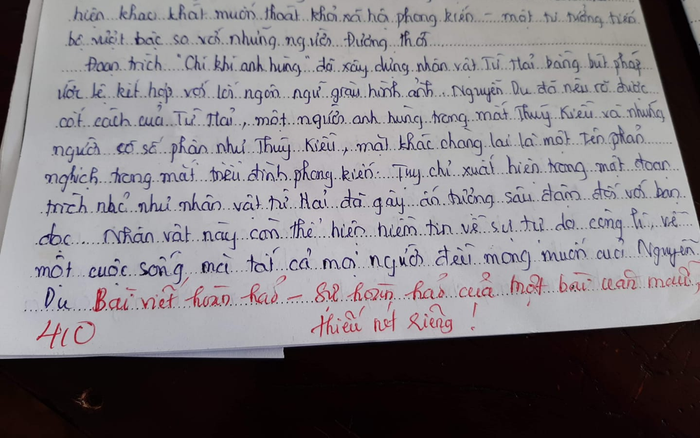 hiện khao khát muốn thoát khỏi xã hội phong kiến - một tư tưởng tiến
bộ vượt bậc so với những người đương thời
Đoạn trích "Chí khí anh hùng" đã xây dựng nhân vật Từ Hải bằng bút pháp
ước lệ kết hợp với lời ngôn ngữ giàu hình ảnh. Nguyễn Du đã nêu rõ được
cốt cách của Từ Hải, một người anh hùng trong mắt Thuý Kiều và những
người có số phận như Thuý Kiều, mặt khác chàng lại là một tên phản
nghịch trong mắt triều đình phong kiến. Tuy chỉ xuất hiện trong một đoạn
trích nhỏ như nhân vật Từ Hải đã gây ấn tượng sâu đậm đối với bạn
đọc. Nhân vật này còn thể hiện niềm tin về sự tự do công lí, về
một cuộc sống mà tất cả mọi người đều mong muốn của Nguyễn
Du
Bài viết hoàn hảo - Sự hoàn hảo của một bài văn mẫu,
thiếu nét riêng!
4,0